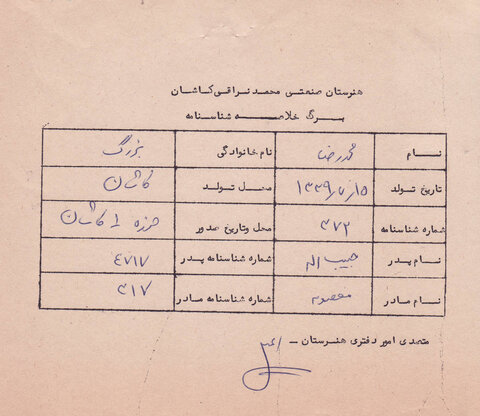 هنرستان صنعتی محمد نراقی کاشان
برگ خلاصه شناسنامه
نام محمدرضا نام خانوادگی بزرگ
تاریخ تولد ۱۳۳۹/۷/۱۵ محل تولد کاشان
شماره شناسنامه ۳۷۲ محل و تاریخ صدور حوزه ۱ کاشان
نام پدر حبیب اله شماره شناسنامه پدر ۴۷۱۷
نام مادر معصومه شماره شناسنامه مادر ۳۱۷
متصدی امور دفتری هنرستان -